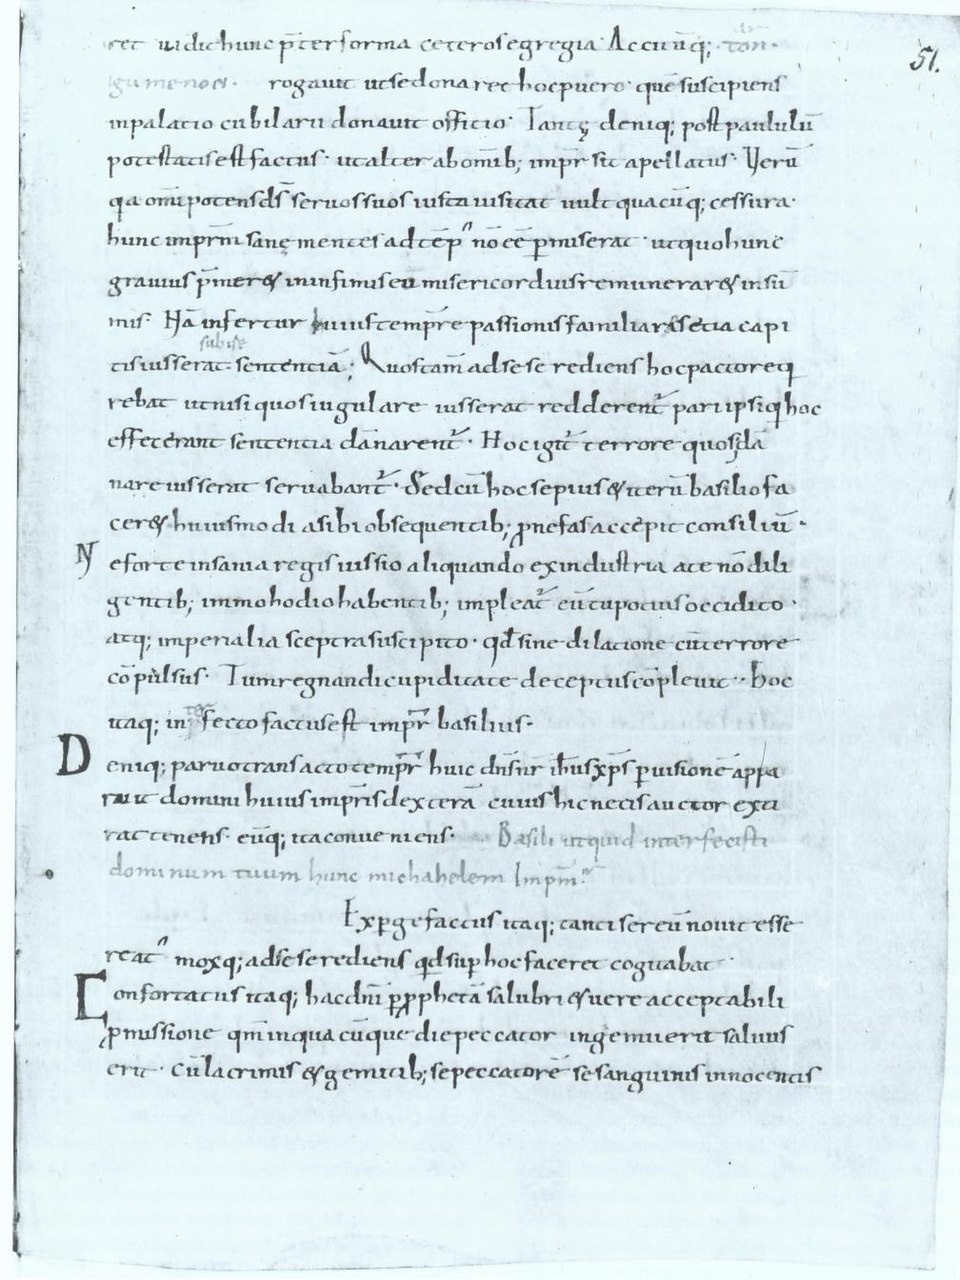 51.
ret uidit hunc p̄ter forma ceteros egregia. Accitūq;
gumenos. rogauit ut sedonaret hoc puero. quē suscipiens
in palatio cubilarii donauit officio. Tantę deniq; post paululū
potestatis est factus. ut alter ab omīb; impr̄ sit apellatus. Verū
qa omīpotens ds̄ seruos suos iusta uisitat uult quacūq; cessura.
hunc imprm̄ sanę mentes ad tēp nō eē p̱miserat. ut quo hunc
grauius p̄mer& in infimis eū misericordius remunerar& insū
mis. Nā infertur huius tempr̄e passionis familiar
tis iusserat subi se sententiā; Quos tam̄ ad sese rediens hoc pacto req
rebat ut nisi quos iugulare iusserat redderent̄ pari ipsi q hoc
effecerant sententia dānarent̄. Hoc igit̄ terrore quos dā
nare iusserat seruabant̄. Sed cū hoc sepius & iterū basilio fa
cer& huiusmodi a sibi obsequentib; ꝓ nefas accepit consiliū.
N
e forte insania regis iussio aliquando ex industria a te nō dili
gentib; immoh odio habentib; impleat̄ eū tu potius occidito.
atq; imperialia sceptra suscipito. qd sine dilatione cū terrore
cō pulsus. Tum regnandi cupiditate deceptus cōpleuit. Hoc
itaq; interfecto factus est impr̄ basilius.
D
eniq; paruo transacto tempr̄ huic dn̄s nr̄ ih̄us xp̄s p uisionē appa
ruit domini huius impr̄is dexterā cuius hic necis auctor exti
rat tenens. eūq; ita conueniens. Basili ut quid interfecisti
dominum tuum hunc michahelem Imprm̄
Exp̱gefactus itaq; tanti ser eū nouit esse
reat moxq; ad se se rediens qd sup hoc faceret cogitabat.
C
onfortatus itaq; hac dn̄i p̱ ꝓphetā salubri & uere acceptabili
ꝓmissione qm̄ in qua cūque die peccator ingemuerit saluus
erit. cū lacrimis & gemitib; se peccatorē se sanguinis innocentis